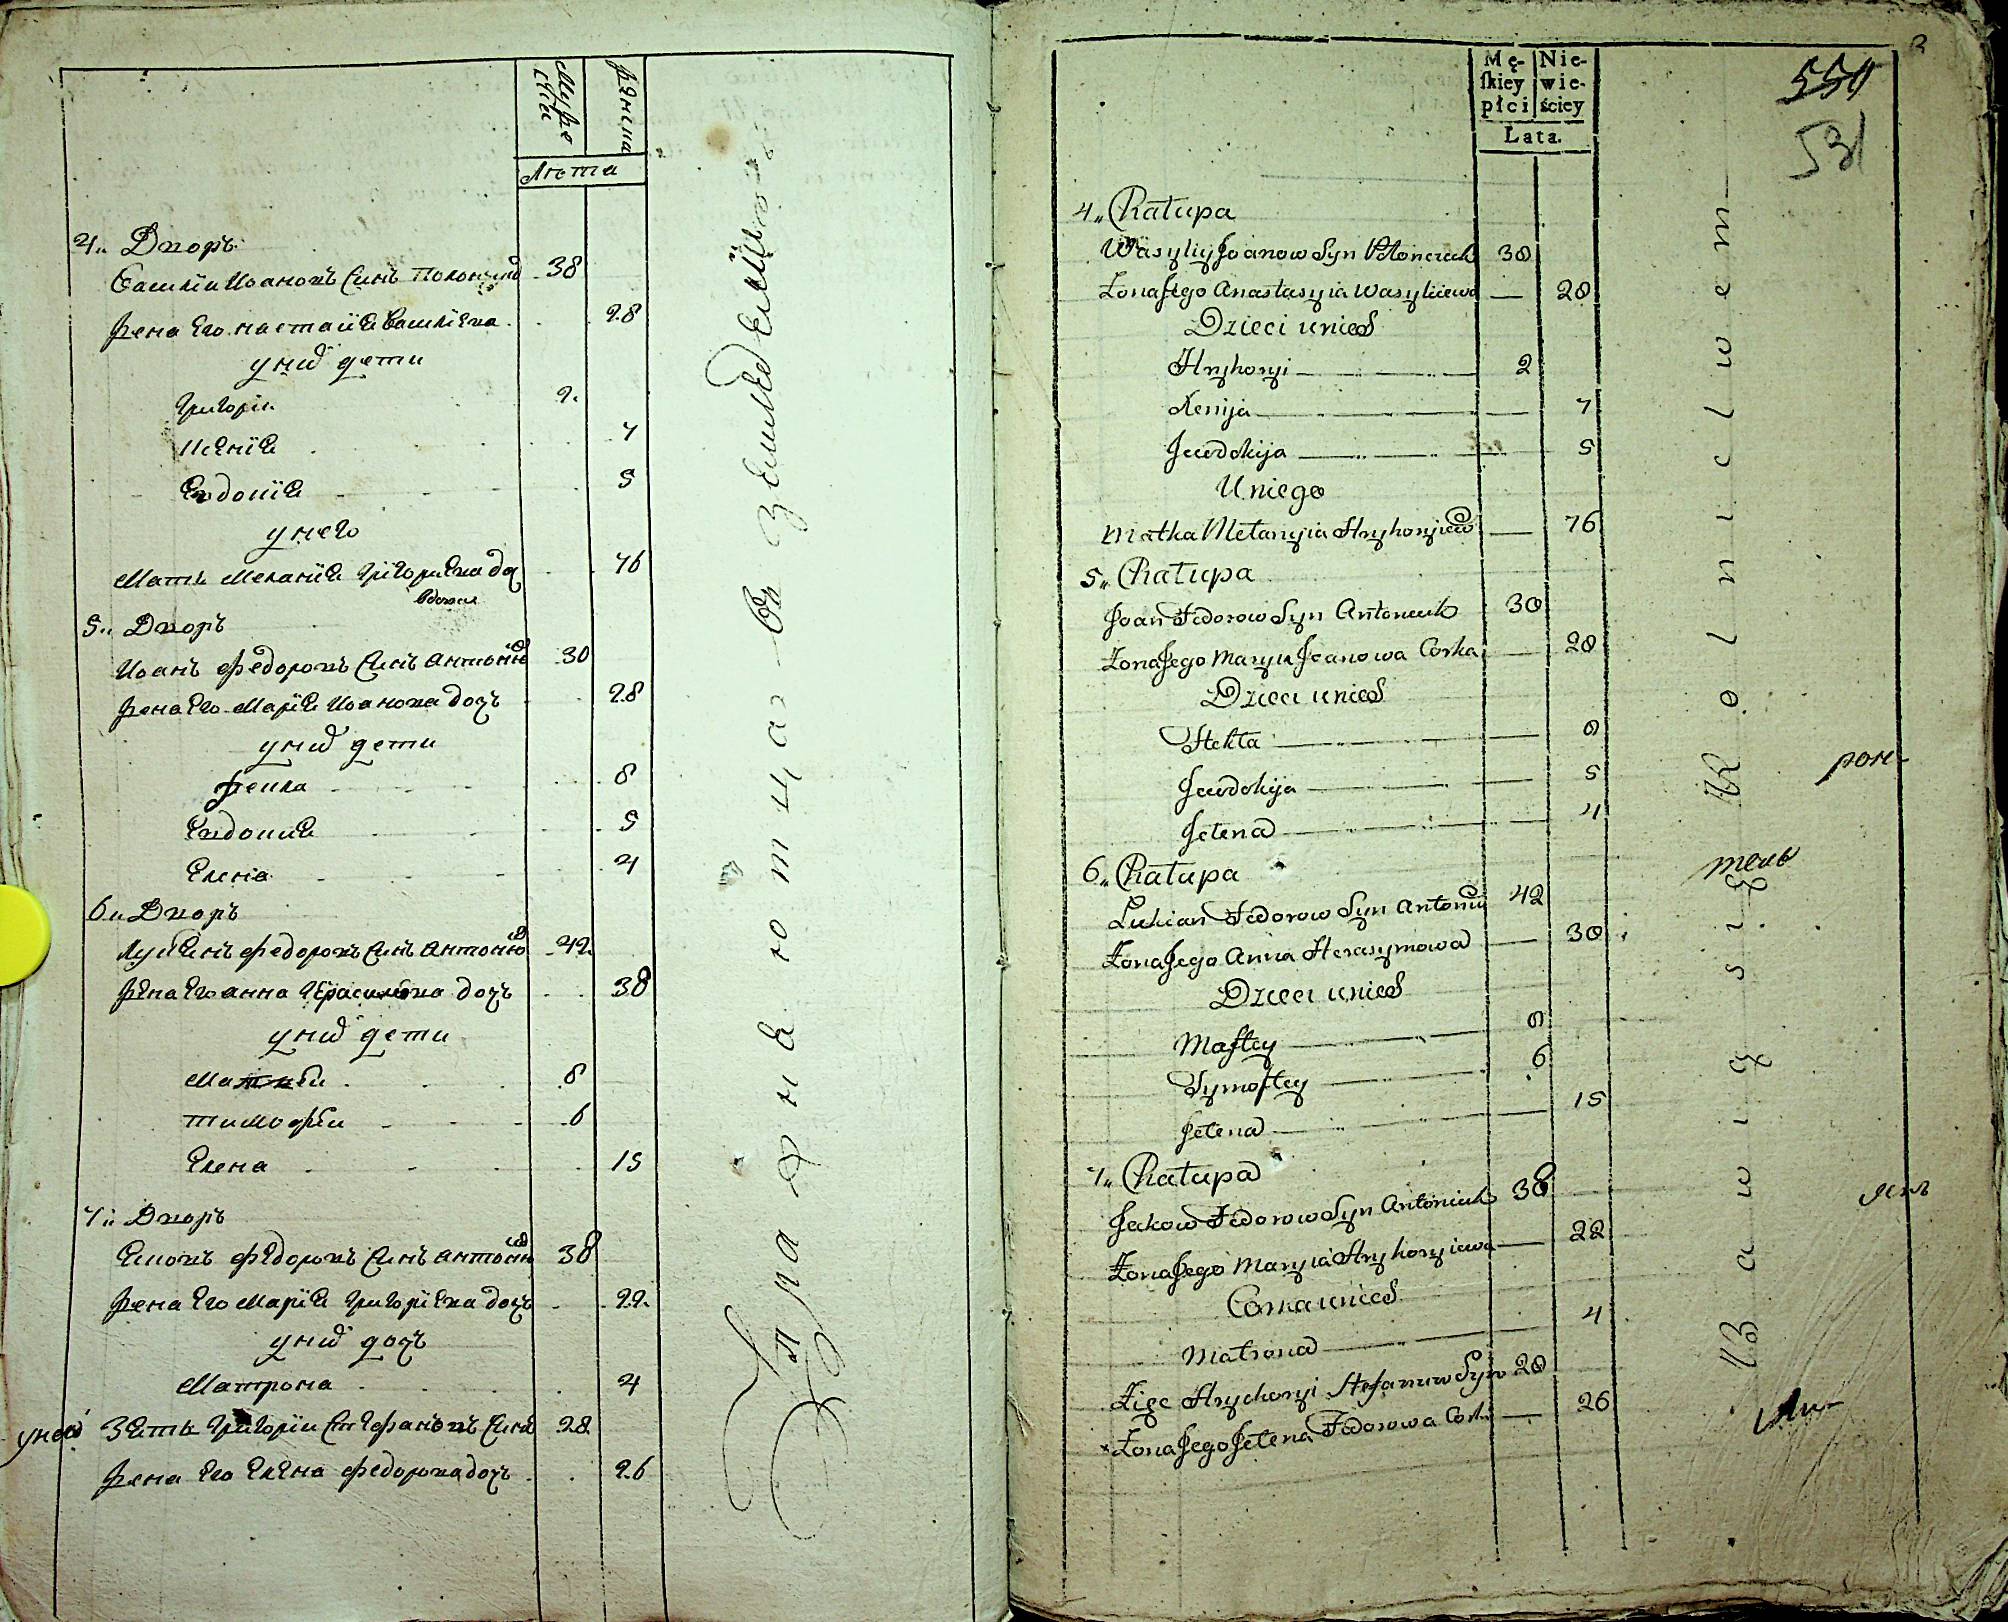 Мужеска
Женска
Лѣта
4,, Дворъ
Василій Иоановъ Синъ Полончукъ 38
Жена Его настасія Василіева 28
У нихъ дети
Григорій 2
Ксенія 7
Евдокія 5
у него
Мать Меланія Григориева доч 76
вдова
5,, Дворъ
Иоанъ Федоровъ Синъ Антонюкъ 30
Жена Его Марія Иоанова дочъ 28
у нихъ дети
Фекла 8
Евдокия 5
Елена 4
6,, Дворъ
Лукиянъ Федоровъ Синъ Антонюкъ 42
Жена Его анна Герасимова дочъ 38
у нихъ дети
Матвѣй 8
тимофѣй 6
Елена 15
7,, Дворъ
Яковъ Федоровъ Синъ Антонюкъ 38
Жена Его Марія Григоріева дочъ 22
у нихъ дочъ
Матрона 4
у него Зять Григорій Стефановъ Синъ 28
Жена Его Елена Федорова дочъ 26
Упражняютца въ земледелій
Mę- Nie-
ſkiey wie-
płci ściey
Lata.
3
550
531
4,, Chałupa
Wasyliy Joanow Syn Połonczuk 38
Żona Jego Anastasyia Wasyliiewa — 28
Dzieci unich
Hryhoryi 2
Xenija 7
Jewdokija 5
U niego
Matka Mełanyia Hryhoryiew — 76
5,, Chałupa
Joan Fedorow Syn Antoniuk 30
Żona Jego Marya Joanowa Corka — 28
Dzieci unich
Thekla 8
Jewdokija 5
Jełena 4
6,, Chałupa
Lukian Fedorow Syn Antoniu 42
Żona Jego Anna Herasymowa — 38
Dzieci unich
Maftey 8
Tymoftey 6
Jełena 15
7,, Chałupa
Jakow Fedorow Syn Antoniuk 38
Żona Jego Maryia Hryhoryiewa — 22
Corka unich
Matrona 4
Zięć Hrychoryi Stefanow Syn 28
Żona Jego Jełena Fedorowa Cork — 26
Bawią się Rolnictwem